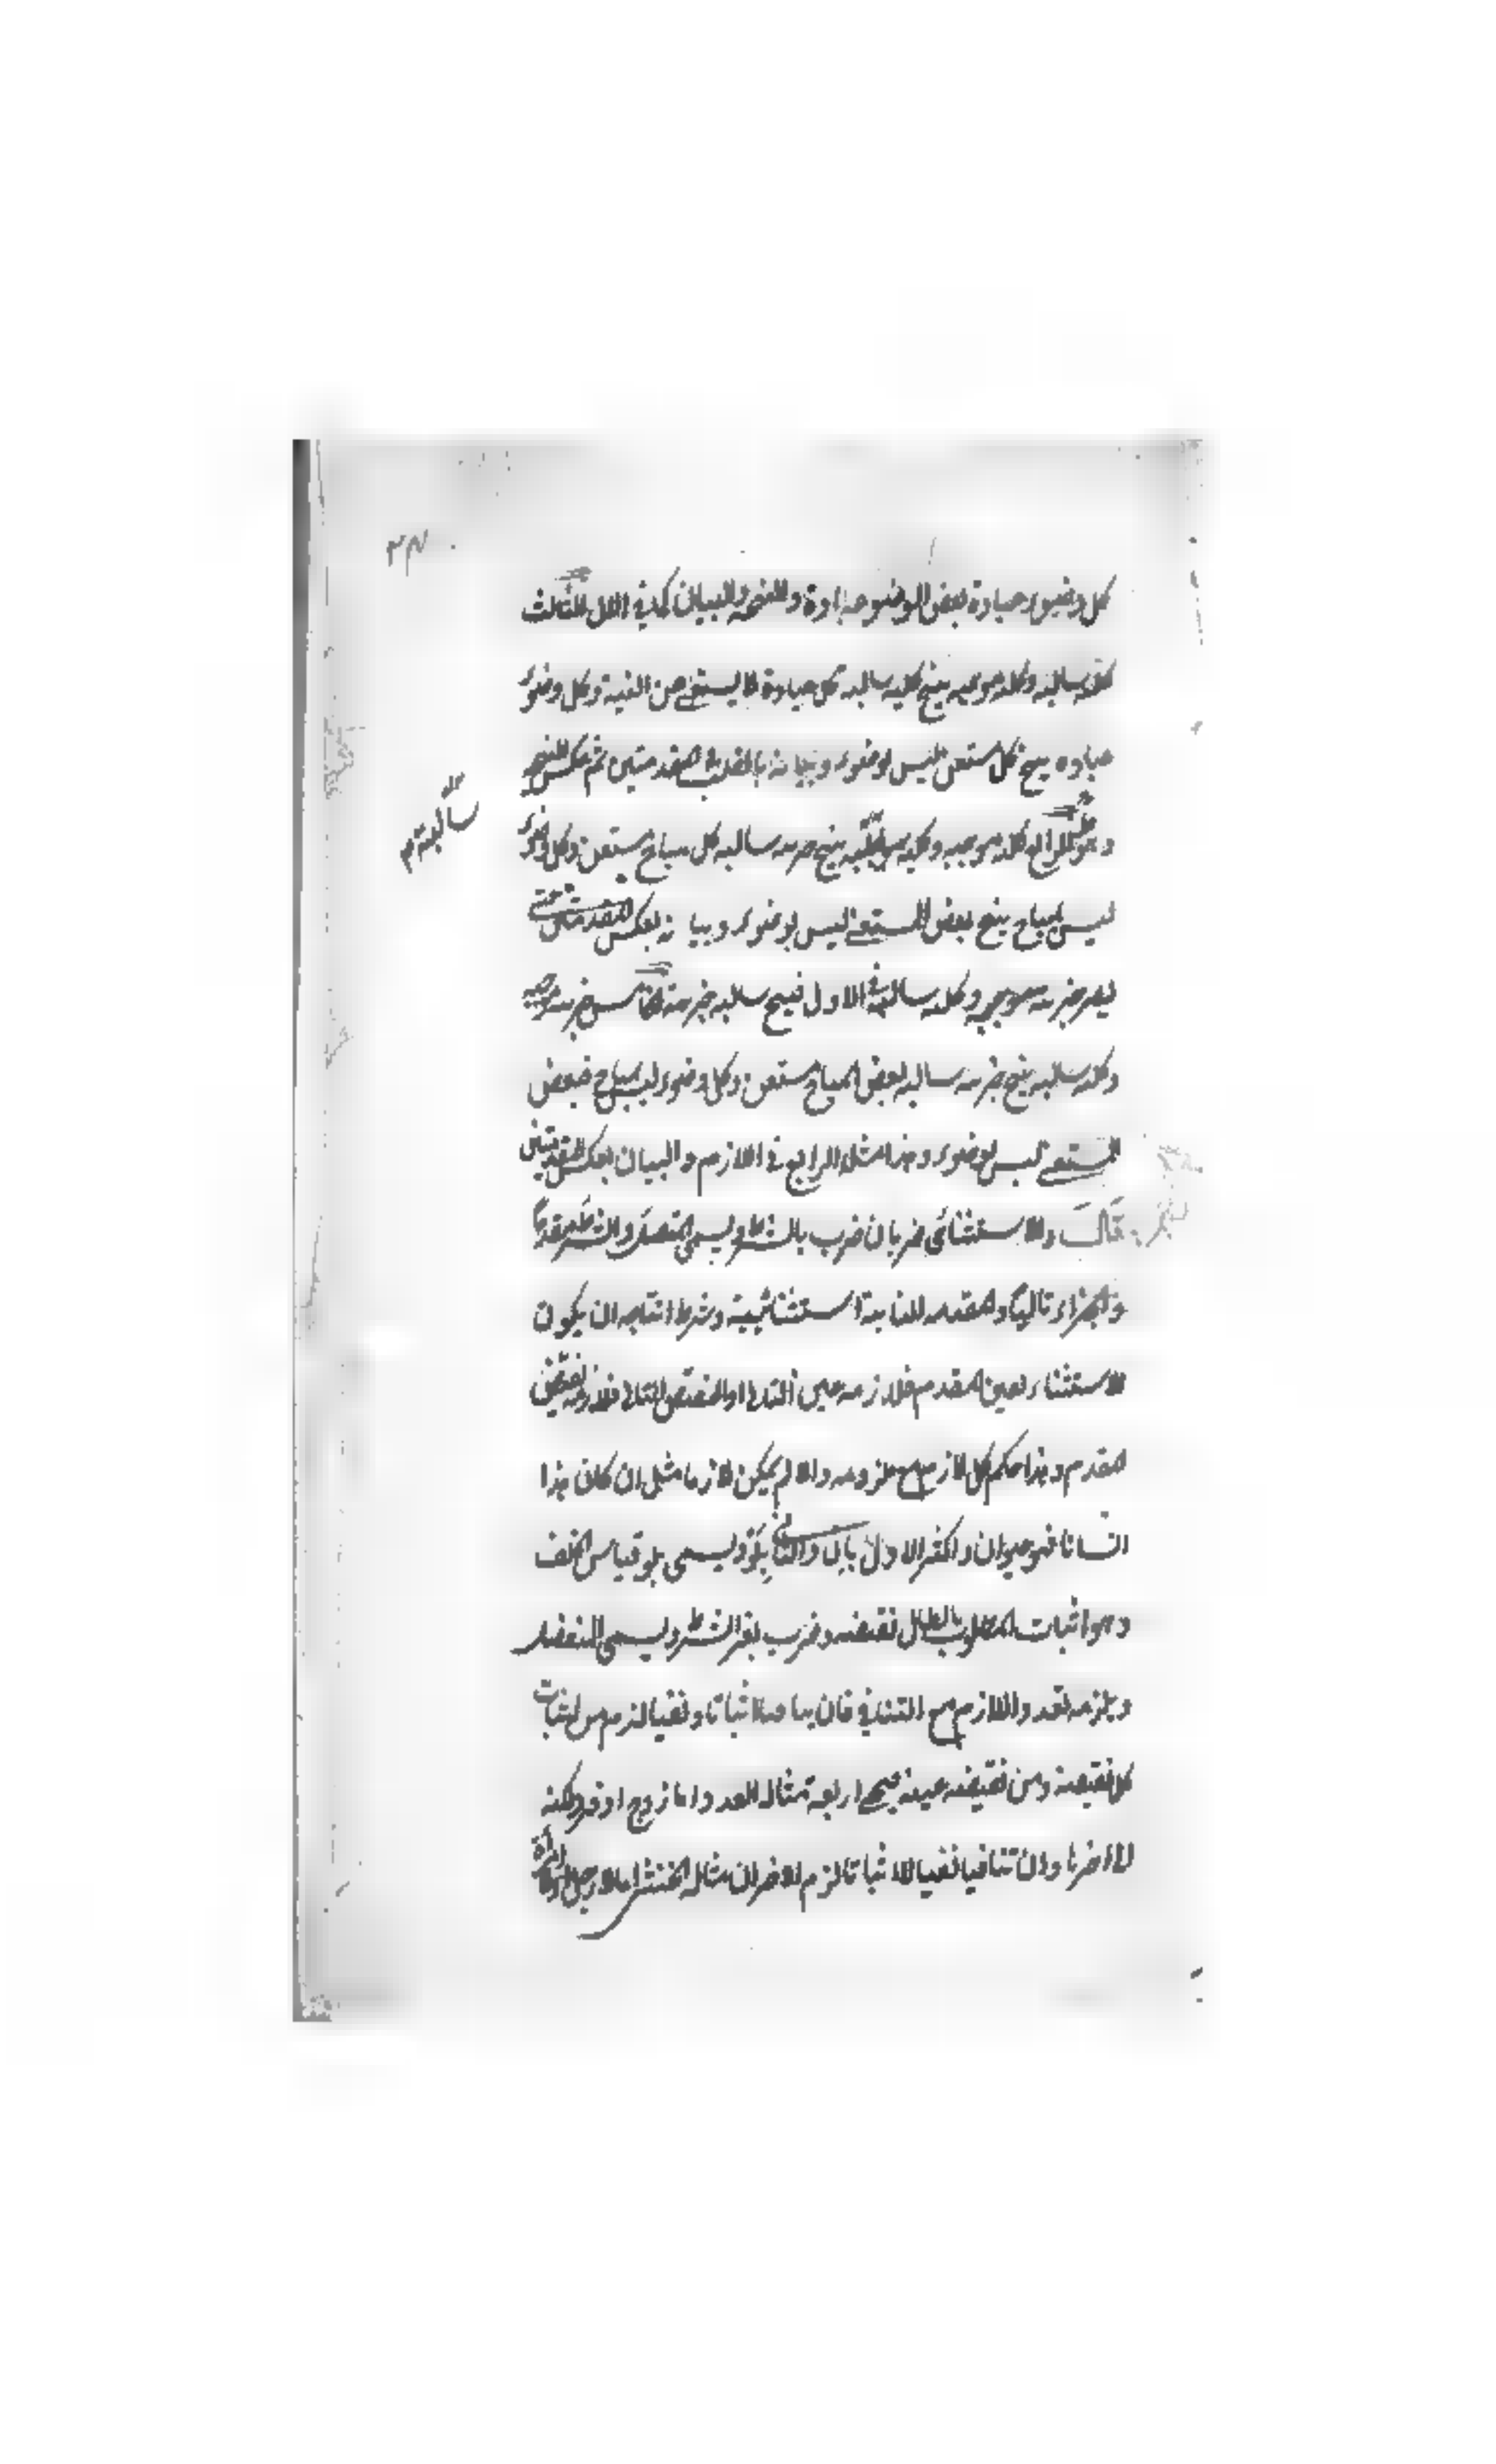 ٣٤
كل وضوء عبادة بعض الوضوء عبادة والنتيجة والبيان كما في الاول الثالث
كلية سالبة وكلية موجبة ينتج كلية سالبة كل عبادة لا يستغنى عن النية وكل وضوء
عبادة ينتج كل مستغن ليس بوضوء وبيانه بالقلب في المقدمتين ثم عكس النتيجة
الرابع كلية موجبة وكلية سالبة ينتج جزئية سالبة كل مباح مستغن وكل وضوء
سالبة م
ليس بمباح ينتج بعض المستغنى ليس بوضوء وبيانه بعكس المقدمتين حتى
يصر جزئية موجبة وكلية سالبة في الاول فينتج سالبة جزئية الخامس جزئية موجبة
وكلية سالبة ينتج جزئية سالبة بعض المباح مستغن وكل وضوء ليس بمباح فبعض
المستغنى ليس بوضوء وهذا مثل الرابع في اللازم والبيان بعكس المقدمتين
قال والاستثنائي ضربان ضرب بالشرط ويسمى المتصل والشرط مقدما
والجزاء تاليا والمقدمة الثانية استثنائية وشرط انتاجه ان يكون
الاستثناء بعين المقدم فلازمه عين التالي او بنقيض التالي فلازمه نقيض
المقدم وهذا حكم كل لازم مع ملزومه والا لم يكن لازما مثل ان كان هذا
انسانا فهو حيوان واكثر الاول بان والثاني بلو ويسمى بلو قياس الخلف
وهو اثبات المطلوب بابطال نقيضه وضرب بغير الشرط ويسمى المنفصل
ويلزمه تعدد اللازم مع التنافي فان تنافيا اثباتا ونفيا لزم من اثبات
كل نقيضه ومن نقيضه عينه فيجيء اربعة مثاله العدد اما زوج او فرد لكنه
الى اخرها وان تنافيا نفيا لا اثباتا لزم الاخران مثاله الخنثى اما لا رجل او لا امرأة